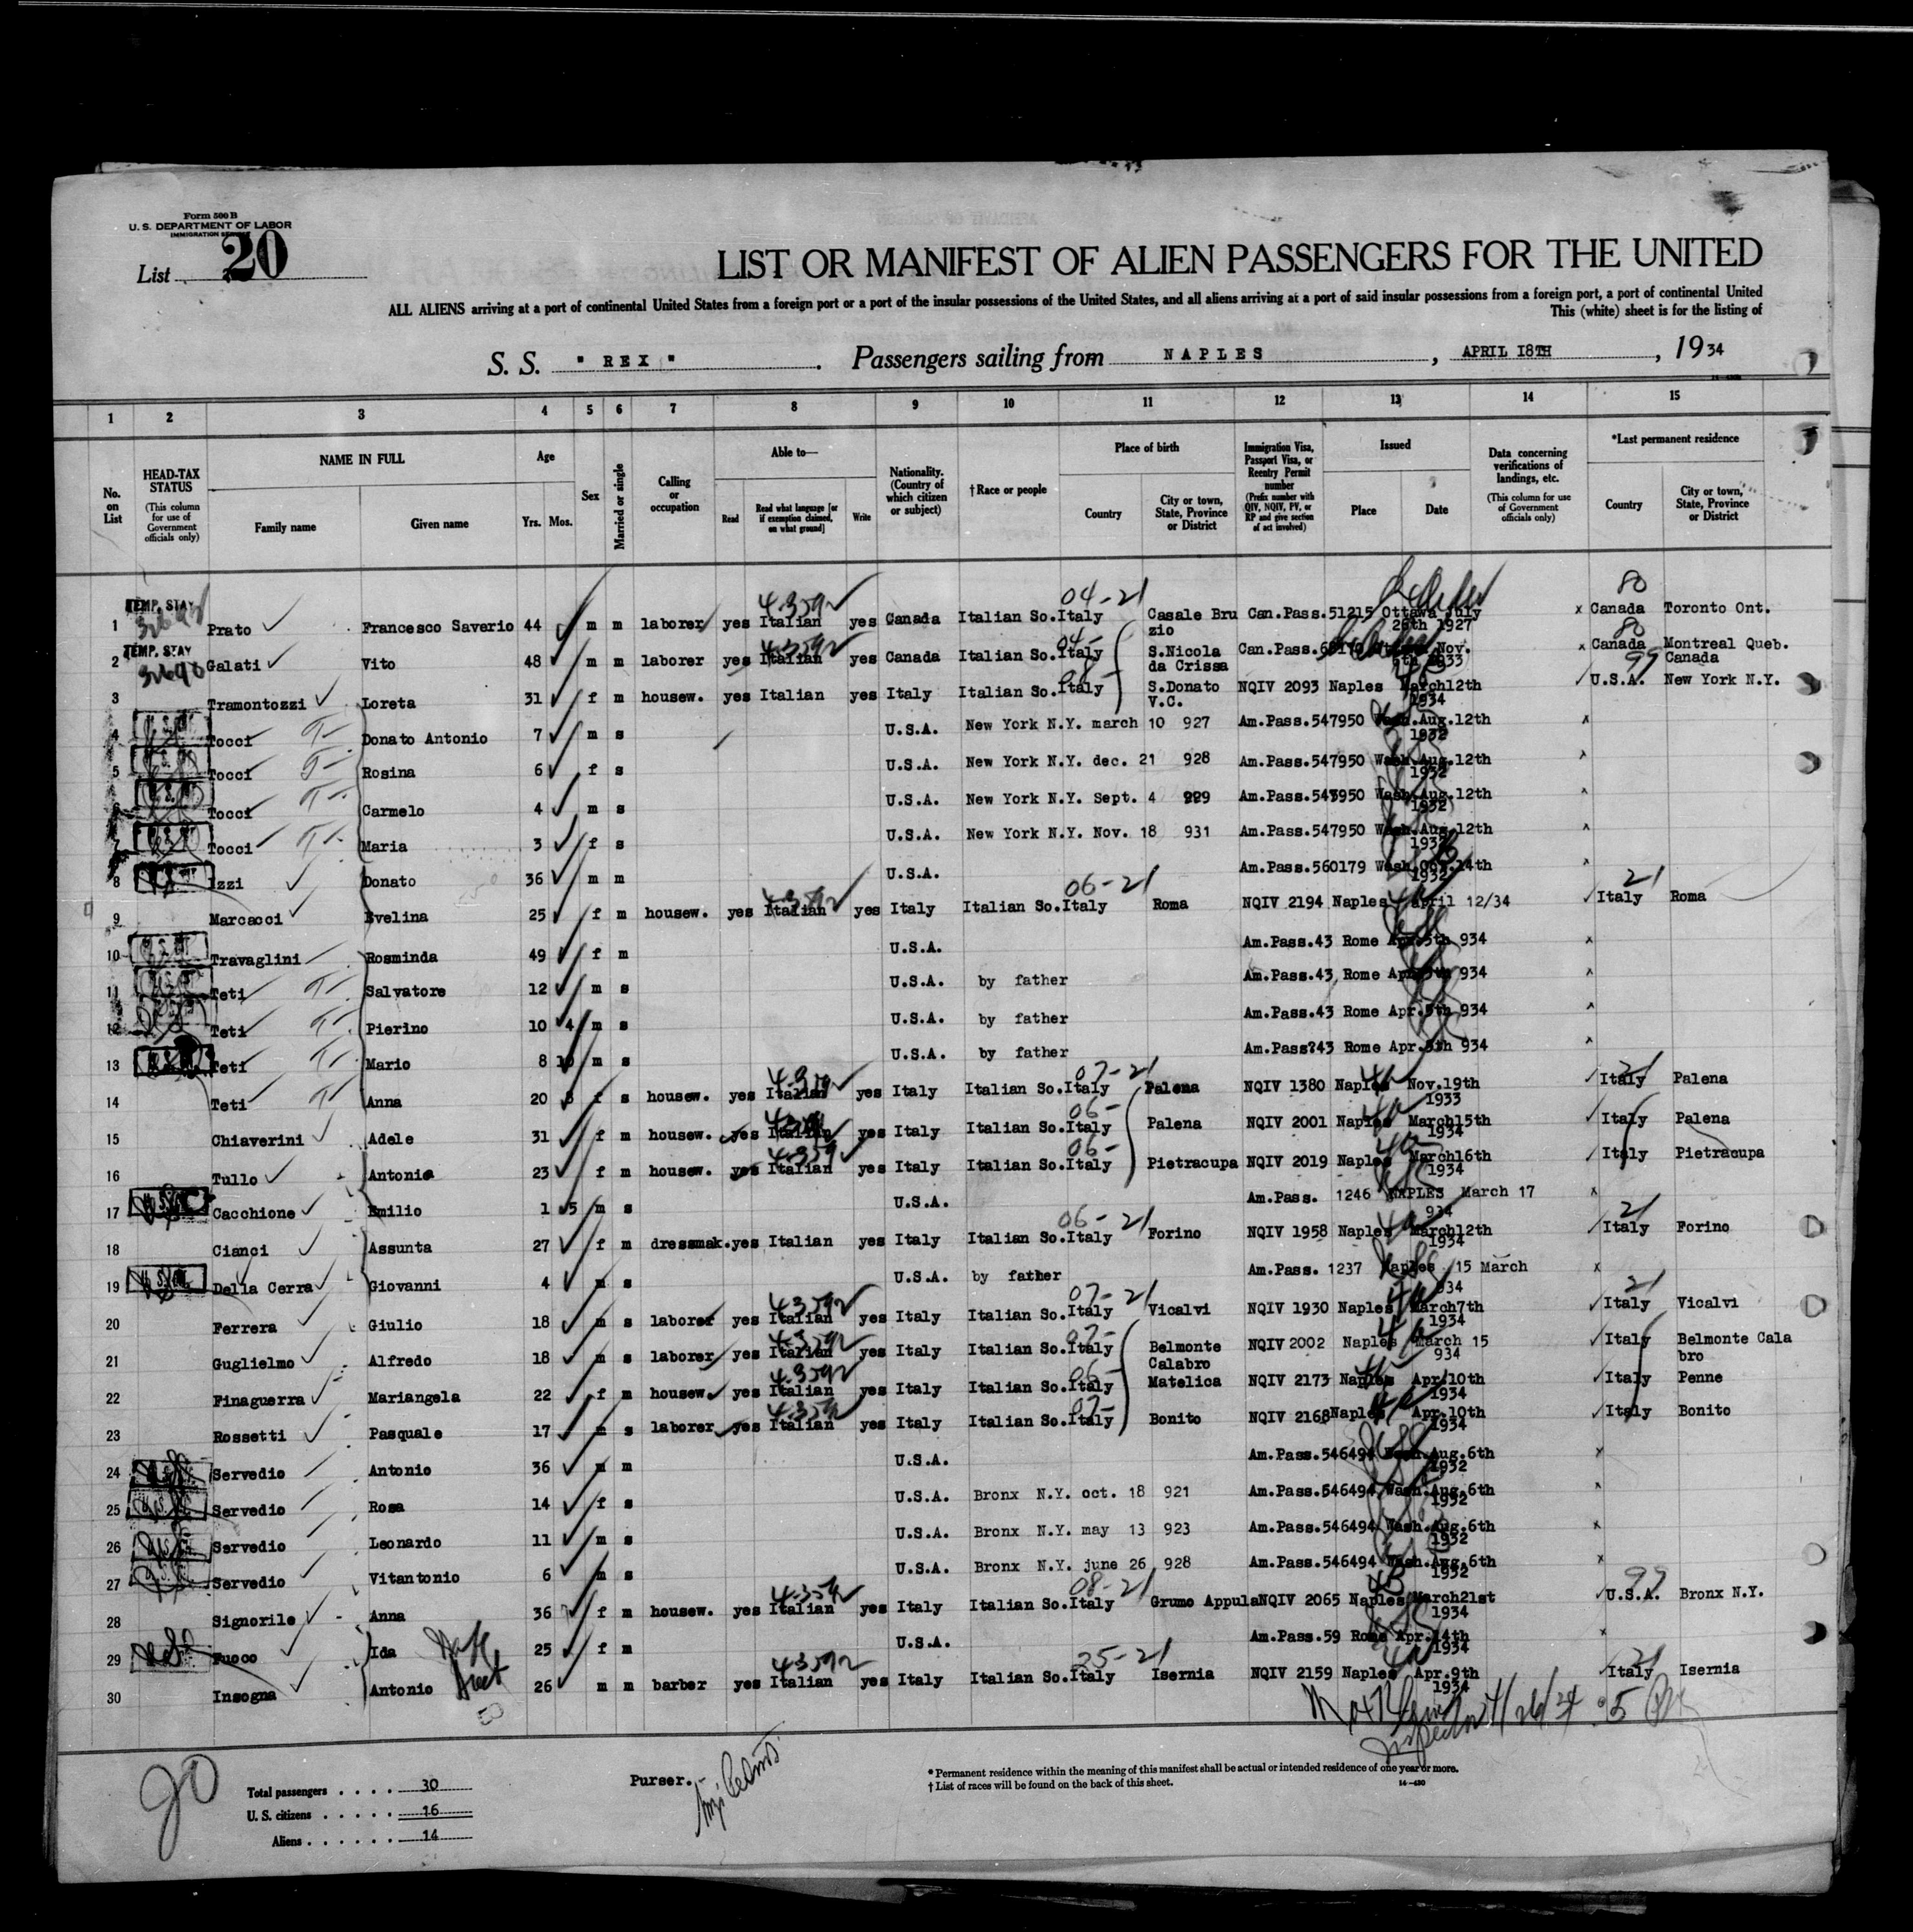 Form 500 B
U. S. DEPARTMENT OF LABOR
IMMIGRATION SERVICE
List 20
LIST OR MANIFEST OF ALIEN PASSENGERS FOR THE UNITED
ALL ALIENS arriving at a port of continental United States from a foreign port or a port of the insular possessions of the United States, and all aliens arriving at a port of said insular possessions from a foreign port, a port of continental United
This (white) sheet is for the listing of
S. S. "REX". Passengers sailing from NAPLES, APRIL 18TH, 1934
1 2 3 4 5 6 7 8 9 10 11 12 13 14 15
No. on List
HEAD-TAX STATUS (This column for use of Government officials only)
NAME IN FULL
Family name
Given name
Age
Yrs. Mos.
Sex
Married or single
Calling or occupation
Able to—
Read
Read what language [or if exemption claimed, on what ground]
Write
Nationality. (Country of which citizen or subject)
†Race or people
Place of birth
Country
City or town, State, Province or District
Immigration Visa, Passport Visa, or Reentry Permit number (Prefix number with QIV, NQIV, PV, or RP and give section of act involved)
Issued
Place
Date
Data concerning verifications of landings, etc. (This column for use of Government officials only)
*Last permanent residence
Country
City or town, State, Province or District
04-21 80
TEMP. STAY
1 Prato Francesco Saverio 44 m m laborer yes Italian yes Canada Italian So. Italy Casale Bruzio Can.Pass.51215 Ottawa July 26th 1927 x Canada Toronto Ont.
TEMP. STAY 04- 80
2 Galati Vito 48 m m laborer yes Italian yes Canada Italian So. Italy S.Nicola da Crissa Can.Pass. Nov. 6th 1933 x Canada Montreal Queb. Canada
99
3 Tramontozzi Loreta 31 f m housew. yes Italian yes Italy Italian So. Italy S.Donato V.C. NQIV 2093 Naples March12th 1934 U.S.A. New York N.Y.
4 Tocci Donato Antonio 7 m s U.S.A. New York N.Y. march 10 927 Am.Pass.547950 Wash.Aug.12th 1932 x
5 Tocci Rosina 6 f s U.S.A. New York N.Y. dec. 21 928 Am.Pass.547950 Wash.Aug.12th 1932 x
6 Tocci Carmelo 4 m s U.S.A. New York N.Y. Sept. 4 929 Am.Pass.547950 Wash.Aug.12th 1932 x
7 Tocci Maria 3 f s U.S.A. New York N.Y. Nov. 18 931 Am.Pass.547950 Wash.Aug.12th 1932 x
8 Izzi Donato 36 m m U.S.A. Am.Pass.560179 Wash.Oct.14th 1932 x
06-21 21
9 Marcacci Evelina 25 f m housew. yes Italian yes Italy Italian So. Italy Roma NQIV 2194 Naples April 12/34 Italy Roma
10 Travaglini Rosminda 49 f m U.S.A. Am.Pass.43 Rome Apr.5th 934 x
11 Teti Salvatore 12 m s U.S.A. by father Am.Pass.43, Rome Apr.5th 934 x
12 Teti Pierino 10 4 m s U.S.A. by father Am.Pass.43 Rome Apr.5th 934 x
13 Teti Mario 8 10 m s U.S.A. by father Am.Pass?43 Rome Apr.5th 934 x
07-21 21
14 Teti Anna 20 8 f s housew. yes Italian yes Italy Italian So. Italy Palena NQIV 1380 Naples Nov.19th 1933 Italy Palena
06-
15 Chiaverini Adele 31 f m housew. yes Italian yes Italy Italian So. Italy Palena NQIV 2001 Naples March15th 1934 Italy Palena
06-
16 Tullo Antonia 23 f m housew. yes Italian yes Italy Italian So. Italy Pietracupa NQIV 2019 Naples March16th 1934 Italy Pietracupa
17 Cacchione Emilio 1 5 m s U.S.A. Am.Pass. 1246 NAPLES March 17 934 x
06-21 21
18 Cianci Assunta 27 f m dressmak. yes Italian yes Italy Italian So. Italy Forino NQIV 1958 Naples March12th 1934 Italy Forino
19 Della Cerra Giovanni 4 m s U.S.A. by father Am.Pass. 1237 Naples 15 March 934 x
07-21 21
20 Ferrera Giulio 18 m s laborer yes Italian yes Italy Italian So. Italy Vicalvi NQIV 1930 Naples March7th 1934 Italy Vicalvi
07-
21 Guglielmo Alfredo 18 m s laborer yes Italian yes Italy Italian So. Italy Belmonte Calabro NQIV 2002 Naples March 15 934 Italy Belmonte Calabro
06-
22 Finaguerra Mariangela 22 f m housew. yes Italian yes Italy Italian So. Italy Matelica NQIV 2173 Naples Apr.10th 1934 Italy Penne
07-
23 Rossetti Pasquale 17 m s laborer yes Italian yes Italy Italian So. Italy Bonito NQIV 2168 Naples Apr.10th 1934 Italy Bonito
24 Servedio Antonio 36 m m U.S.A. Am.Pass.546494 Wash.Aug.6th 1932 x
25 Servedio Rosa 14 f s U.S.A. Bronx N.Y. oct. 18 921 Am.Pass.546494 Wash.Aug.6th 1932 x
26 Servedio Leonardo 11 m s U.S.A. Bronx N.Y. may 13 923 Am.Pass.546494 Wash.Aug.6th 1932 x
27 Servedio Vitantonio 6 m s U.S.A. Bronx N.Y. june 26 928 Am.Pass.546494 Wash.Aug.6th 1932 x
08-21 99
28 Signorile Anna 36 f m housew. yes Italian yes Italy Italian So. Italy Grumo Appula NQIV 2065 Naples March21st 1934 U.S.A. Bronx N.Y.
29 Fuoco Ida 25 f m U.S.A. Am.Pass.59 Rome Apr.14th 1934 x
25-21 21
30 Insogna Antonio 26 m m barber yes Italian yes Italy Italian So. Italy Isernia NQIV 2159 Naples Apr.9th 1934 Italy Isernia
Inspector 4/26/34
20
Total passengers . . . . 30
U. S. citizens . . . . . 16
Aliens . . . . . . 14
Purser.
* Permanent residence within the meaning of this manifest shall be actual or intended residence of one year or more.
† List of races will be found on the back of this sheet.
14-430